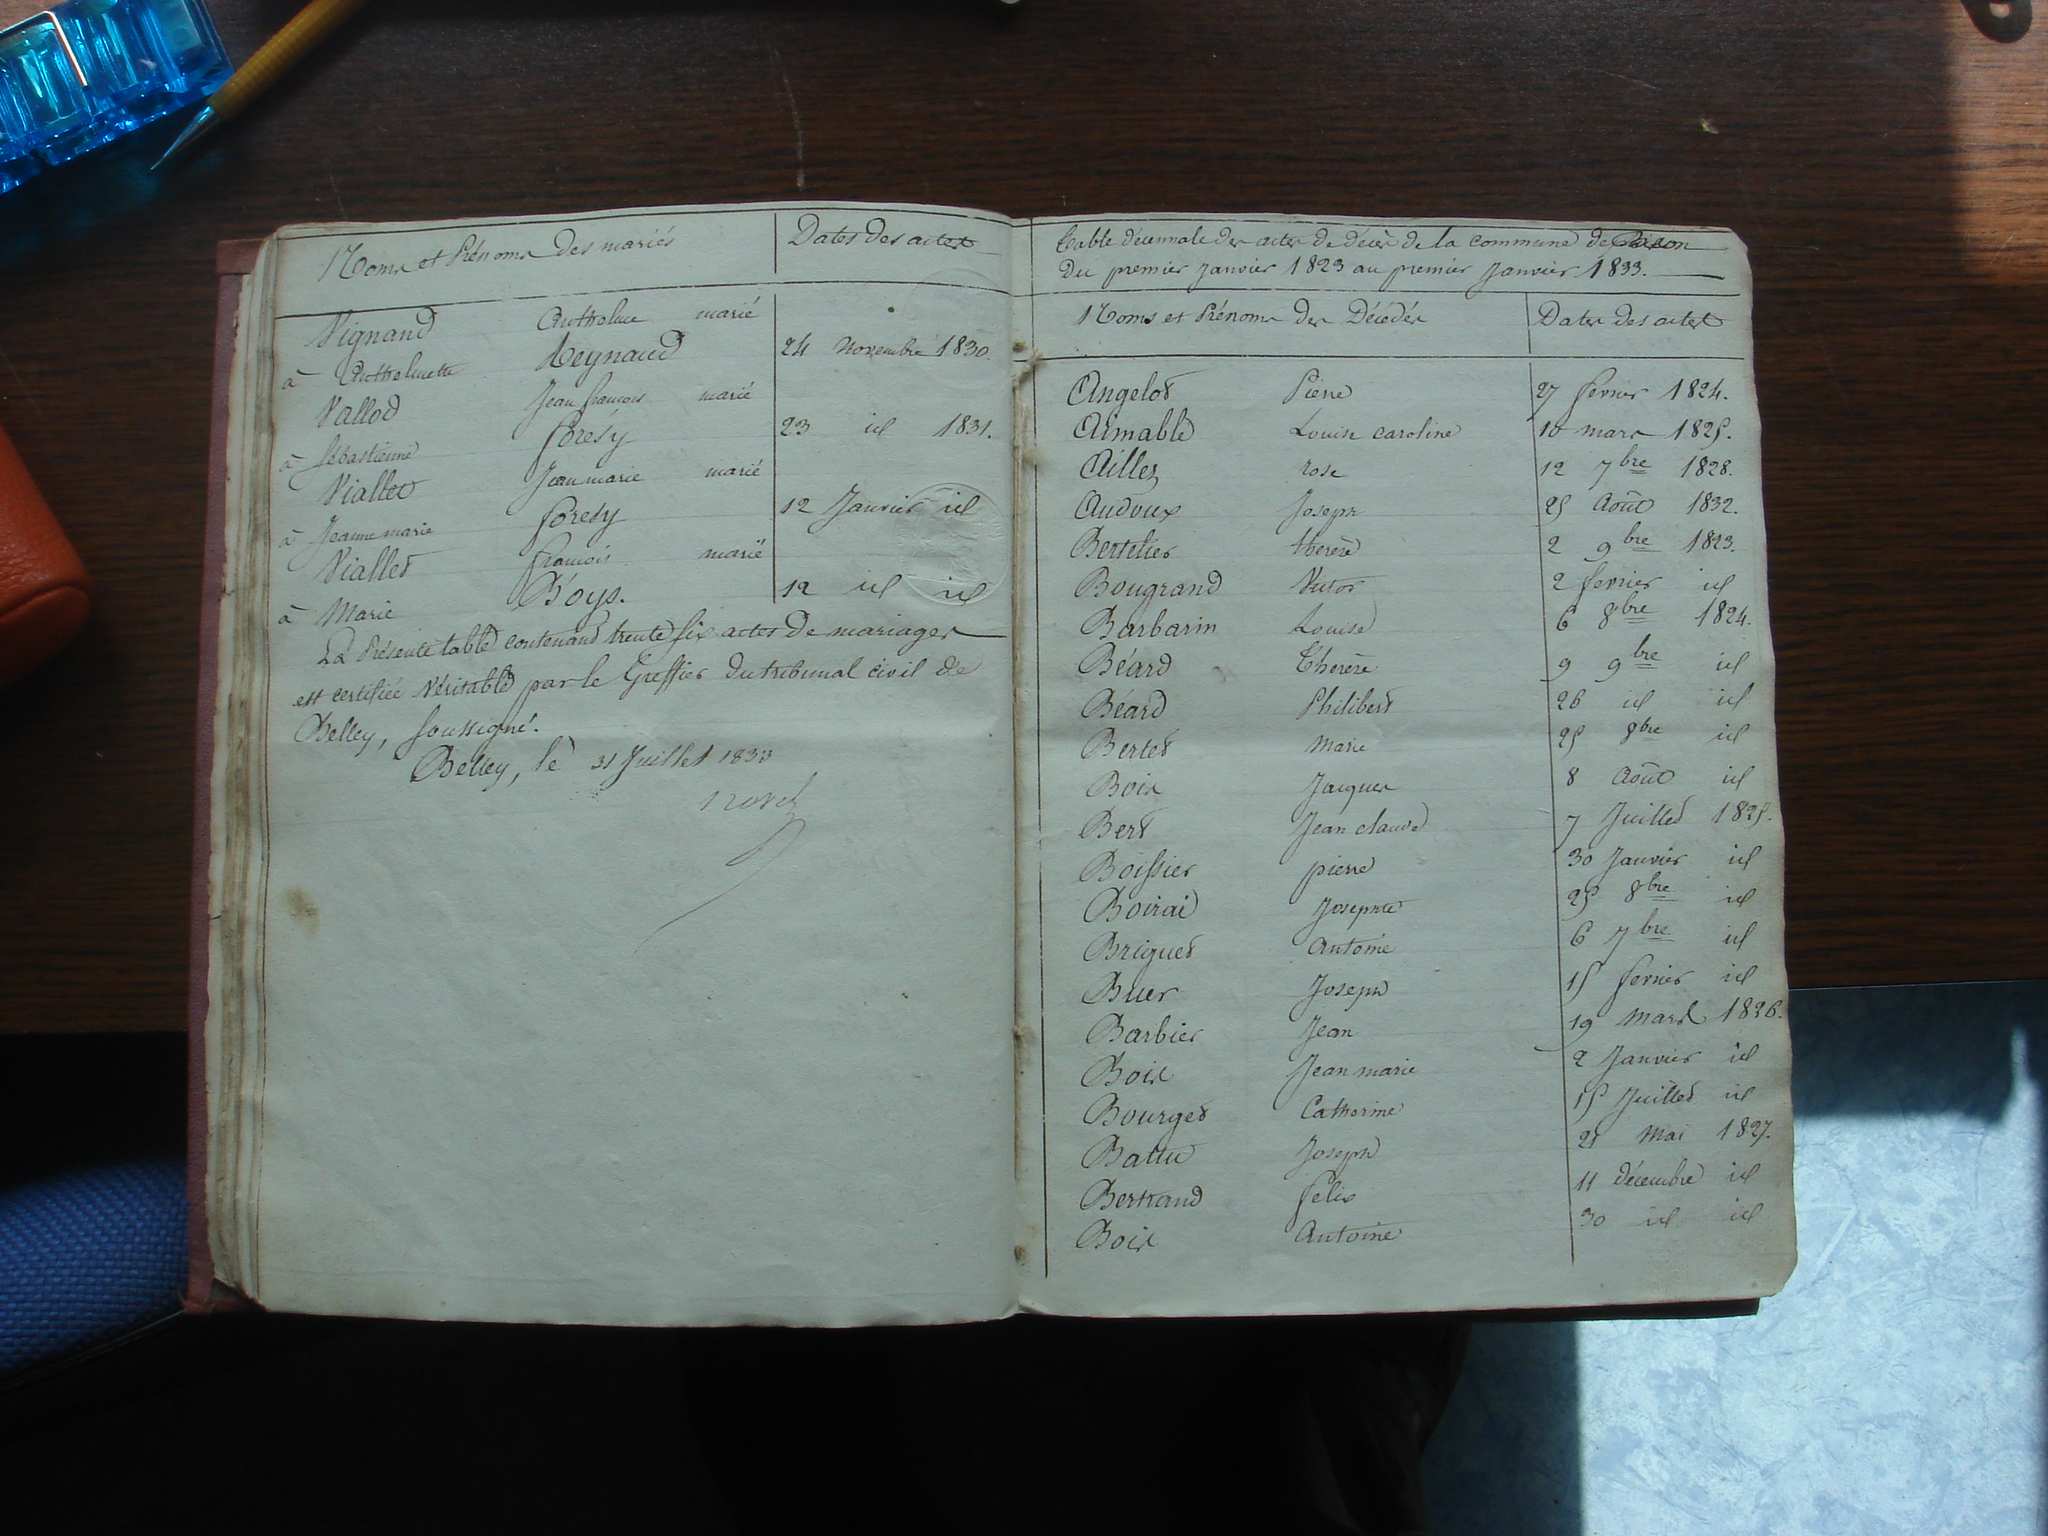 Noms et Prénoms des mariés Dates des actes
Vignand Anthelme marié
à Anthelmette Reynaud 24 novembre 1830.
Vallod Jean françois marié
à Sébastienne forésy 23 id 1831.
Viallet Jean marie marié
à Jeanne marie forésy 12 Janvier id
Viallet françois marié
à Marie Boys. 12 id id
La Présente table contenant trente six actes de mariages
est certifiée Véritable par le Greffier du tribunal civil de
Belley, soussigné.
Belley, le 31 Juillet 1833
Table décennale des actes de décès de la commune de
Du premier Janvier 1823 au premier Janvier 1833.
Noms et Prénoms des Décédés Dates des actes
Angelot Pierre 27 février 1824.
Aimable Louise caroline 10 mars 1825.
Aillez rose 12 7bre 1828.
Audoux Joseph 25 Août 1832.
Bertelier therèse 2 9bre 1823.
Bougrand Victor 2 février id
Barbarin Louise 6 8bre 1824.
Béard Thérèse 9 9bre id
Béard Philibert 26 id id
Bertet Marie 25 8bre id
Bois Jacques 8 Août id
Bert Jean claude 7 Juillet 1825.
Boissier pierre 30 Janvier id
Boirai Josephte 25 8bre id
Briguet Antoine 6 7bre id
Buer Joseph 15 février id
Barbier Jean 19 Mars 1826.
Bois Jean marie 2 Janvier id
Bourget Catherine 15 Juillet id
Battu Joseph 25 Mai 1827.
Bertrand félix 11 décembre id
Bois Antoine 30 id id